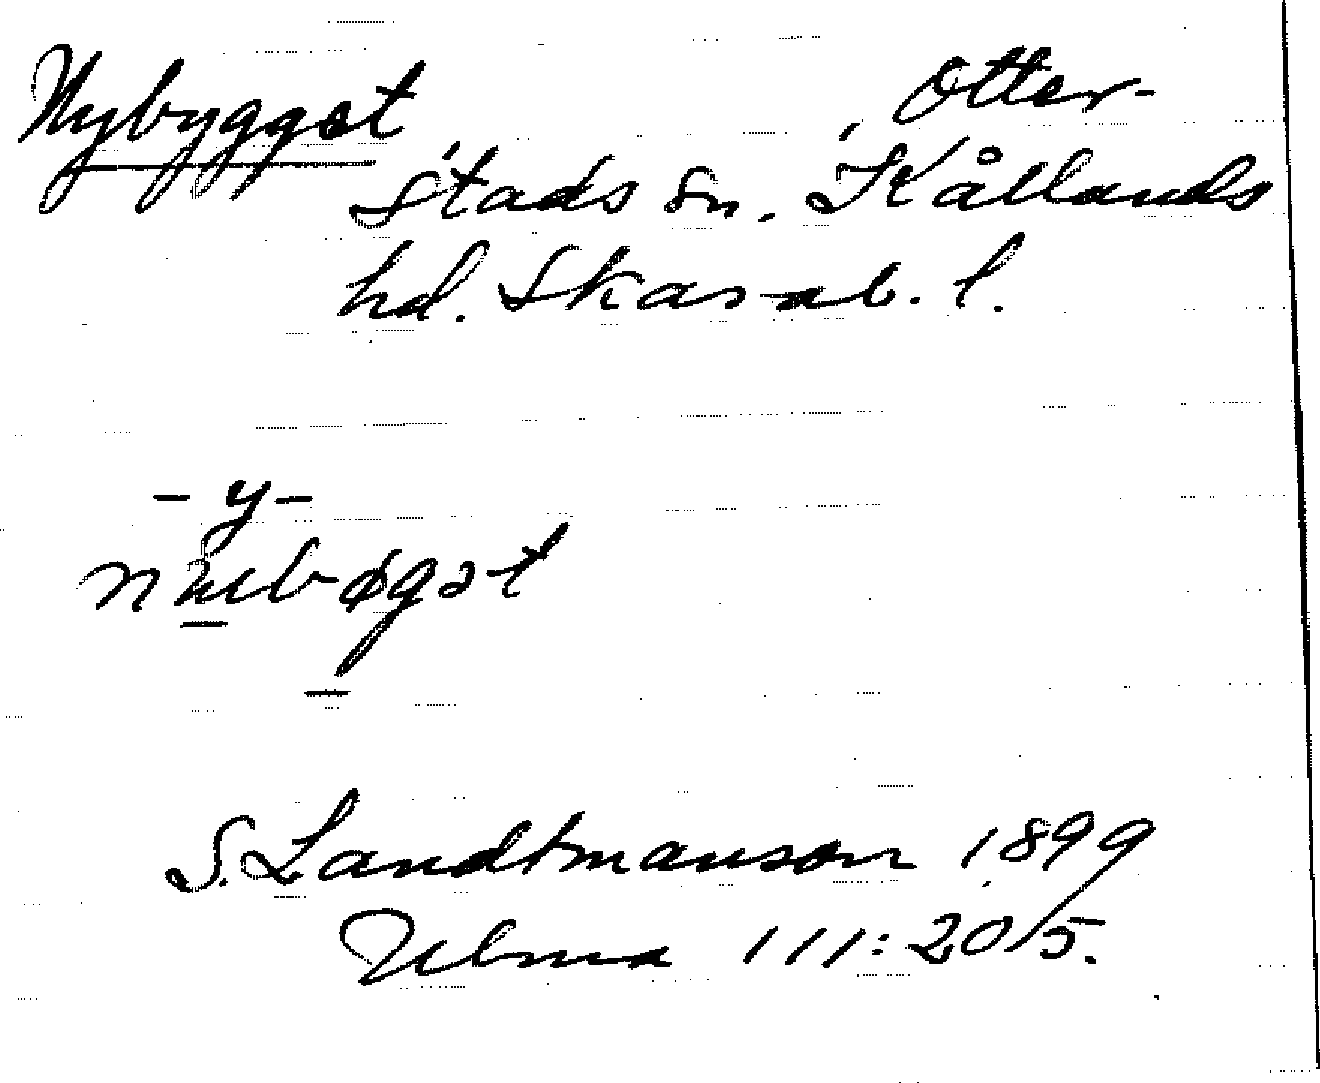 Nybygget Otter-
stads sn. Kållands
hd. Skarab. l.
- y -
S. Landtmanson 1899
Ulma 111:205.